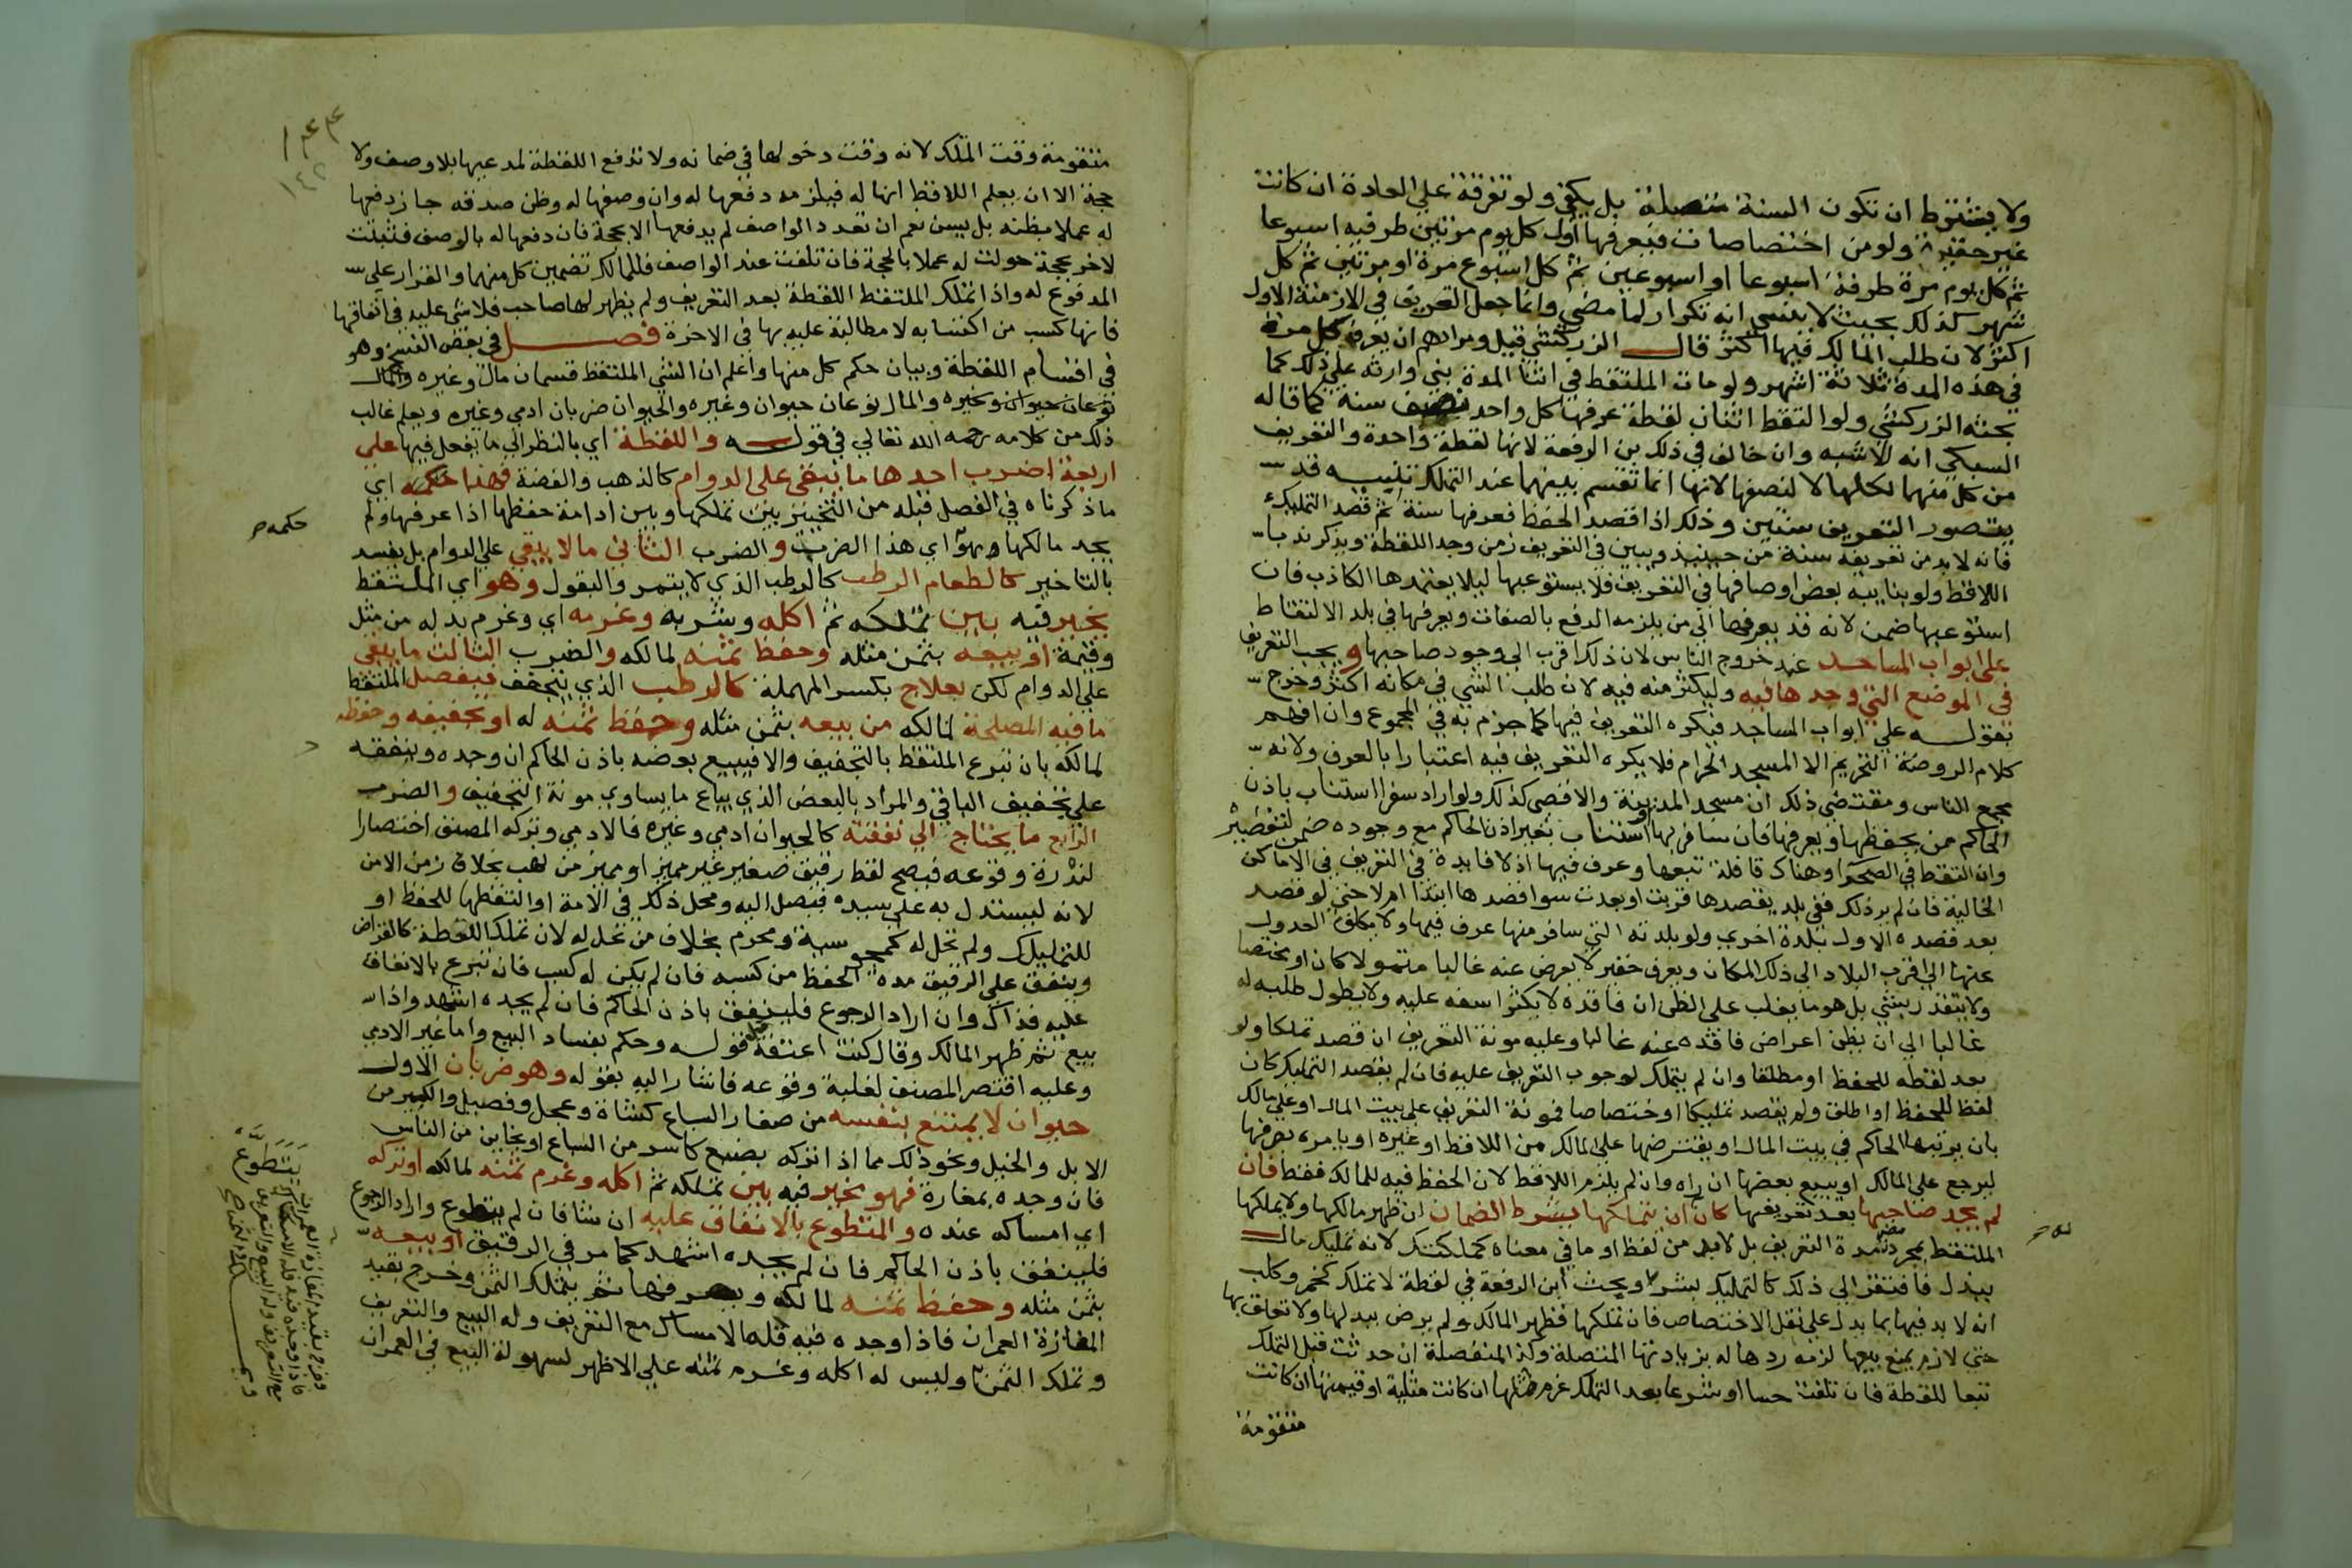 ولا يشترط ان تكون السنة متصلة بل يكفي ولو تفرقة علي العادة ان كانت
غير حقيرة ولو من اختصاصات فيعرفها اول كل يوم مرتين طرفيه اسبوعا
ثم كل يوم مرة طرفه اسبوعا او اسبوعين ثم كل اسبوع مرة او مرتين ثم كل
شهر كذلك بحيث لا ينسي انه تكرار لما مضي وانما جعل التعريف في الازمنة الاول
اكثر لان طلب المالك فيها اكثر قال الزركشي قيل ومرادهم ان يعرف كل مرة
في هذه المدة ثلاثة اشهر ولو مات الملتقط في اثنا المدة بني وارثه علي ذلك كما
بحثه الزركشي ولو التقط اثنان لقطة عرفها كل واحد نصف سنة كما قاله
السبكي انه الاشبه وان خالف في ذلك بن الرفعة لانها لقطة واحدة والتعريف
من كل منهما لكلها لا لنصفها لانها انما تقسم بينهما عند التملك تنبيه قد
يتصور التعريف سنتين وذلك اذا قصد الحفظ فعرفها سنة ثم قصد التمليك
فانه لا بد من تعريفه سنة من حينيذ ويبين في التعريف زمن وجد اللقطة ويذكر ندبا
اللاقط ولو بنايبه بعض اوصافها في التعريف فلا يستوعبها ليلا يعتمدها الكاذب فان
استوعبها ضمن لانه قد يعرفها الي من يلزمه الدفع بالصفات ويعرفها في بلد الالتقاط
على ابواب المساجد عند خروج الناس لان ذلك اقرب الي وجود صاحبها ويجب التعريف
في الموضع التي وجدها فيه وليكثر منه فيه لان طلب الشي في مكانه اكثر وخرج
بقوله علي ابواب المساجد فيكره التعريف فيها كما جزم به في المجموع وان افهم
كلام الروضة التحريم الا المسجد الحرام فلا يكره التعريف فيه اعتبارا بالعرف ولانه
مجمع الناس ومقتضي ذلك ان مسجد المدينة والاقصى كذلك ولو اراد سفرا استناب باذن
الحاكم من يحفظها ويعرفها فان سافر بها او استناب بغير اذن الحاكم مع وجوده ضمن لتقصيره
وان التقط في الصحرا وهناك قافلة تبعها وعرف فيها اذ لا فايدة في التعريف في الاماكن
الخالية فان لم يرد ذلك ففي بلد يقصدها قربت او بعدت سوا قصدها ابتدا ام لا حتي لو قصد
بعد قصده الاول بلدة اخري ولو بلدته التي سافر منها عرف فيها ولا يكلف العدول
عنها الي اقرب البلاد الي ذلك المكان ويعرف حقير لا يعرض عنه غالبا متمولا كان او مختصا
ولا يتقدر بشي بل هو ما يغلب علي الظن ان فاقده لا يكثر اسفه عليه ولا يطول طلبه له
غالبا الي ان يظن اعراض فاقده عنه غالبا وعليه مونة التعريف ان قصد تملكا ولو
بعد لقطه للحفظ او مطلقا وان لم يتملك لوجوب التعريف عليه فان لم يقصد التمليك كان
لقط للحفظ او اطلق ولم يقصد تمليكا او ختصاصا فمونة التعريف علي بيت المال او علي مالك
بان يرتبها الحاكم في بيت المال او يقترضها علي المالك من اللاقط او غيره او يامره بصرفها
ليرجع علي المالك او يبيع بعضها ان راه وان لم يلزم اللاقط لان الحفظ فيه للمالك فقط فان
لم يجد صاحبها بعد تعريفها كان ان يتملكها بشرط الضمان ان ظهر مالكها ولا يملكها
الملتقط بمجرد مضي مدة التعريف بل لابد من لفظ او ما في معناه كتملكت لانه تمليك مال
ببدل فافتقر الي ذلك كالتمليك بشرا وبحث ابن الرفعة في لقطة لا تملك كخمر وكلب
انه لا بد فيها بما يدل علي نقل الاختصاص فان تملكها فظهر المالك ولم يرض ببدلها ولا تعلق بها
حق لازم يمنع بيعها لزمه ردها له بزيادتها المتصلة وكذا المنفصلة ان حدثت قبل التملك
تبعا للقطة فان تلفت حسا او شرعا بعد التملك غرم مثلها ان كانت مثلية او قيمتها ان كانت
متقومة
متقومة وقت التملك لانه وقت دخولها في ضمانه ولا تدفع اللقطة لمدعيها بلا وصف ولا
حجة الا ان يعلم اللاقط انها له فيلزمه دفعها له وان وصفها له وظن صدقه جاز دفعها
له عملا بظنه بل يسن نعم ان تعدد الواصف لم يدفعها الا بحجة فان دفعها له بالوصف فثبتت
لاخر بحجة حولت له عملا بالحجة فان تلفت عند الواصف فللمالك تضمين كل منهما والقرار علي
المدفوع له واذا تملك الملتقط اللقطة بعد التعريف ولم يظهر لها صاحب فلا شي عليه في انفاقها
فانها كسب من اكتسابه لا مطالبة عليه بها في الاخرة فصل في بعض النسخ وهو
في اقسام اللقطة وبيان حكم كل منها واعلم ان الشي الملتقط قسمان مال وغيره والمال
نوعان حيوان وغيره والمال نوعان حيوان وغيره والحيوان ضربان ادمي وغيره ويعلم غالب
ذلك من كلامه رحمه الله تعالي في قوله واللقطة اي بالنظر الي ما يفعل فيها علي
اربعة اضرب احدها ما يبقي على الدوام كالذهب والفضة فهذا حكمه اي
ما ذكرناه في الفصل قبله من التخيير بين تملكها وبين ادامة حفظها اذا عرفها ولم
يجد مالكها وهو اي هذا الضرب والضرب الثاني ما لا يبقي علي الدوام بل يفسد
بالتاخير كالطعام الرطب كالرطب الذي لا يتمر والبقول وهو اي الملتقط
يخير فيه بين تملكه ثم اكله وشربه وغرمه اي وغرم بدله من مثل
وقيمة او بيعه بثمن مثله وحفظ ثمنه لمالكه والضرب الثالث ما يبقي
علي الدوام لكن بعلاج بكسر المهملة كالرطب الذي يتجفف فيفصل الملتقط
ما فيه المصلحة لمالكه من بيعه بثمن مثله وحفظ ثمنه له او تجفيفه وحفظه
لمالكه بان تبرع الملتقط بالتجفيف والا فيبيع بعضه باذن الحاكم ان وجده وينفقه
علي تجفيف الباقي والمراد بالبعض الذي يباع ما يساوي مونة التجفيف والضرب
الرابع ما يحتاج الي نفقته كالحيوان ادمي وغيره فالادمي وتركه المصنف اختصارا
لندرة وقوعه فيصح لقط رقيق صغير غير مميز او مميز من نهب بخلاف زمن الامن
لانه ليستدل به علي سيده فيصل اليه ومحل ذلك في الامة اذا التقطها للحفظ او
للتمليك ولم تحل له كمجوسية ومحرم بخلاف من تحل له لان تملك اللقطة كالقراض
وينفق علي الرقيق مدة الحفظ من كسبه فان لم يكن له كسب فان تبرع بالانفاق
عليه فذاك وان اراد الرجوع فلينفق باذن الحاكم فان لم يجده اشهد واذا
بيع ثم ظهر المالك وقال كنت اعتقه قبل قوله وحكم بفساد البيع واما غير الادمي
وعليه اقتصر المصنف لغلبة وقوعه فاشار اليه بقوله وهو ضربان الاول
حيوان لا يمتنع بنفسه من صغار السباع كشاة وعجل وفصيل والكسير من
الابل والخيل ونحو ذلك مما اذا تركه يضيع كاسر من السباع او بخاين من الناس
فان وجده بمفازة فهو مخير فيه بين تملكه ثم اكله وغرم ثمنه لمالكه او تركه
اي امساكه عنده والتطوع بالانفاق عليه ان شا فان لم يتطوع واراد الرجوع
فلينفق باذن الحاكم فان لم يجده اشهد كما مر في الرقيق او بيعه
بثمن مثله وحفظ ثمنه لمالكه ويعرفها ثم يتملك الثمن وخرج بقيد
المفازة العمران فاذا وجده فيه فله الامساك مع التعريف وله البيع والتعريف
وتملك الثمن وليس له اكله وغرم ثمنه علي الاظهر لسهولة البيع في العمران
حكمه
يتطوع
وخرج بقيد المفازة العمران
فاذا وجده فيه فله الامساك
مع التعريف وله البيع والتعريف